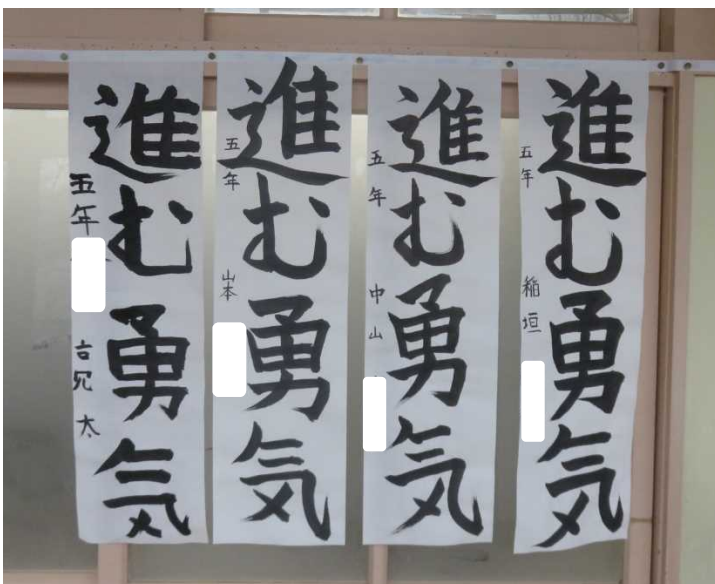 進む勇気
五年 稲垣
進む勇気
五年 中山
進む勇気
五年 山本
進む勇気
五年 太